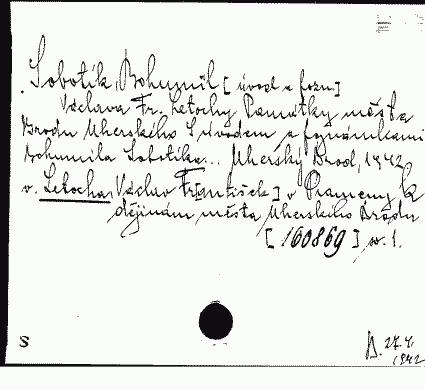 Sobotík Bohumil [úvod a pozn.]
Václava Fr. Letochy Památky města
Brodu Uherského S úvodem a poznámkami
Bohumila Sobotíka... Uherský Brod, 1942
v. Letocha Václav Fr[antišek] v Prameny k
dějinám města Uherského Brodu
[160869] sv. 1.
S
27.4.
1942